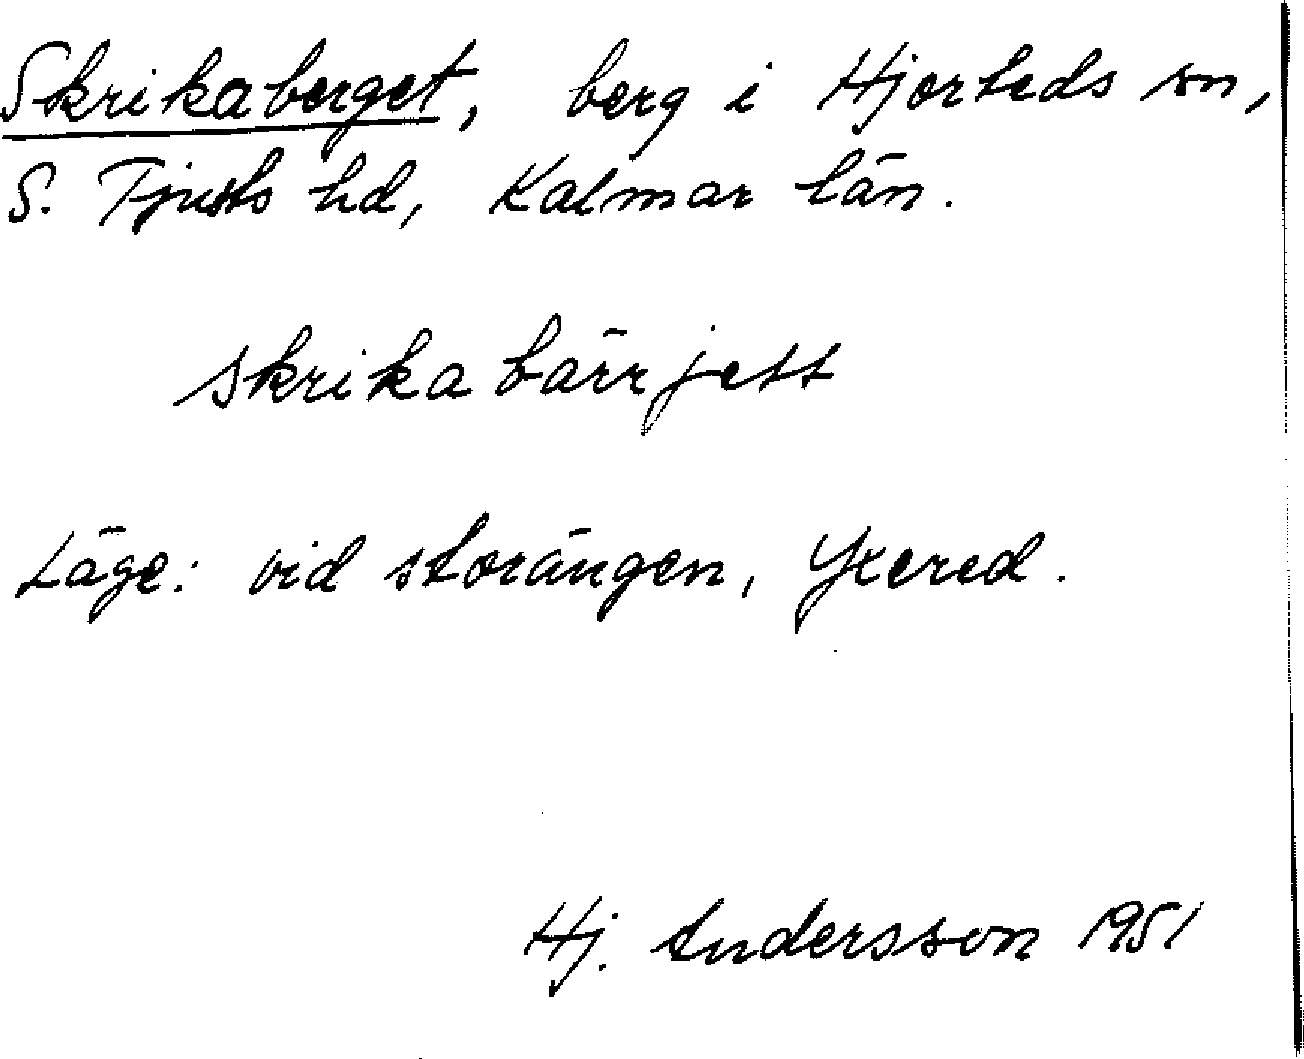 Skrikaberget, berg i Hjorteds sn,
S. Tjusts hd, Kalmar län.
skrikabärrjett
Läge: vid storängen, Yxered.
Hj. Andersson 1951